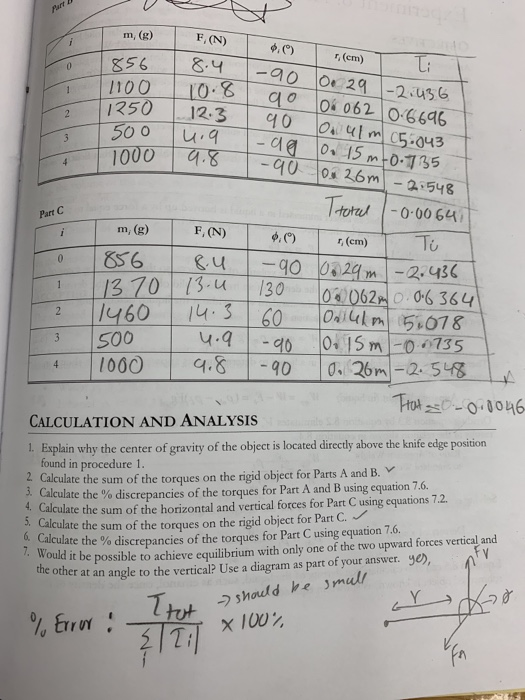 Part B
i m, (g) F, (N) ϕ, (°) r, (cm) Ti
0 856 8.4 -90 0.29 -2.436
1 1100 10.8 90 0.062 0.6696
2 1250 12.3 90 0.41m 5.043
3 500 4.9 -90 0.15m -0.735
4 1000 9.8 -90 0.26m -2.548
Ttotal -0.0064
Part C
i m, (g) F, (N) ϕ, (°) r, (cm) Ti
0 856 8.4 -90 0.29m -2.436
1 1370 13.4 130 0.062m 0.6364
2 1460 14.3 60 0.41m 5.078
3 500 4.9 -90 0.15m -0.735
4 1000 9.8 -90 0.26m -2.548
Ttot = -0.0046
CALCULATION AND ANALYSIS
1. Explain why the center of gravity of the object is located directly above the knife edge position
found in procedure 1.
2. Calculate the sum of the torques on the rigid object for Parts A and B. ✓
3. Calculate the % discrepancies of the torques for Part A and B using equation 7.6.
4. Calculate the sum of the horizontal and vertical forces for Part C using equations 7.2.
5. Calculate the sum of the torques on the rigid object for Part C. ✓
6. Calculate the % discrepancies of the torques for Part C using equation 7.6.
7. Would it be possible to achieve equilibrium with only one of the two upward forces vertical and
the other at an angle to the vertical? Use a diagram as part of your answer. yes,
Fv
→ should be small
% Error : Ttot / Σ|Ti| x 100%
i
r